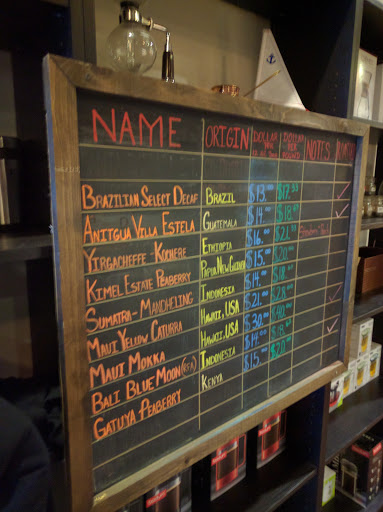 NAME ORIGIN DOLLAR DOLLAR PER POUND NOTES
BRAZILIAN SELECT DECAF BRAZIL $13.00 $17.33
ANITGUA VILLA ESTELA GUATEMALA $14.00
YIRGACHEFFE - KOCHERE ETHIOPIA $16.00
KIMEL ESTATE PEABERRY PAPUA NEW GUINEA $15.00 $20.00
SUMATRA - MANDHELING INDONESIA $14.00
MAUI YELLOW CATURRA HAWAII, USA $21.00
MAUI MOKKA HAWAII, USA $30.00
BALI BLUE MOON (RFA) INDONESIA $14.00
GATUYA PEABERRY KENYA $15.00 $20.00